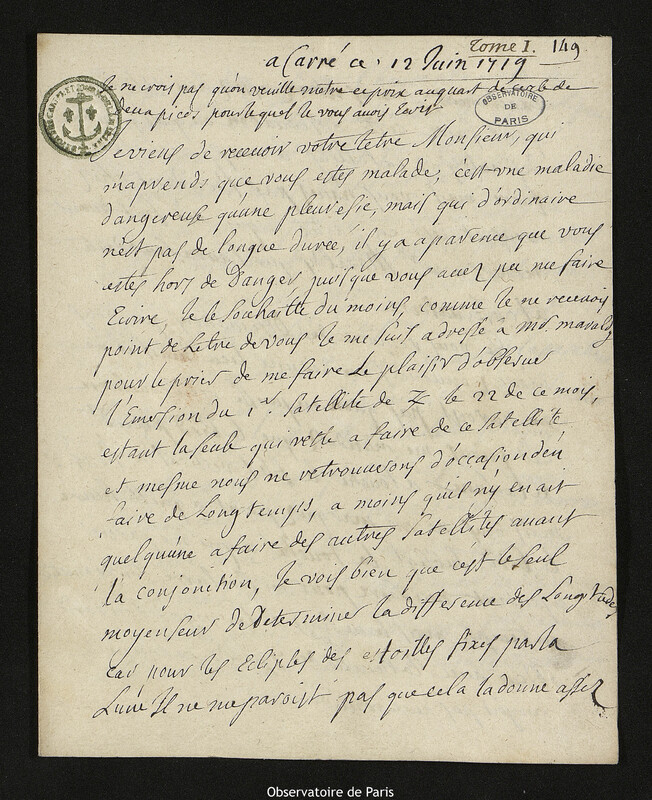 Tome I. 149
a Carré ce 12 Juin 1719
Je ne crois pas qu'on veuille metre ce prix au quart de cercle de
deux pieds pour lequel je vous avois Ecrit
OBSERVATOIRE
DE
PARIS
Je viens de recevoir votre letre Monsieur, qui
m'aprends que vous estes malade, c'est une maladie
dangereuse qu'une pleuresie, mais qui d'ordinaire
n'est pas de longue durée, il y a aparence que vous
estes hors de Danger puisque vous avez pu me faire
Ecrire, je le souhaitte du moins, comme je ne recevois
point de Letre de vous je me suis adressé a mr. maraldy
pour le prier de me faire le plaisir d'observer
l'Emersion du 1er. Satellite de ♃ le 22 de ce mois,
estant la seule qui reste a faire de ce satellite
et mesme nous ne retrouverons d'occasion d'en
faire de Longtemps, a moins qu'il n'y en ait
quelqu'une a faire des autres Satellites avant
la conjonction, je vois bien que c'est le seul
moyen seur de Determiner la difference des Longitudes
car pour les Eclipses des estoilles fixes par la
Lune Il ne me paroist pas que cela la donne assez
Observatoire de Paris